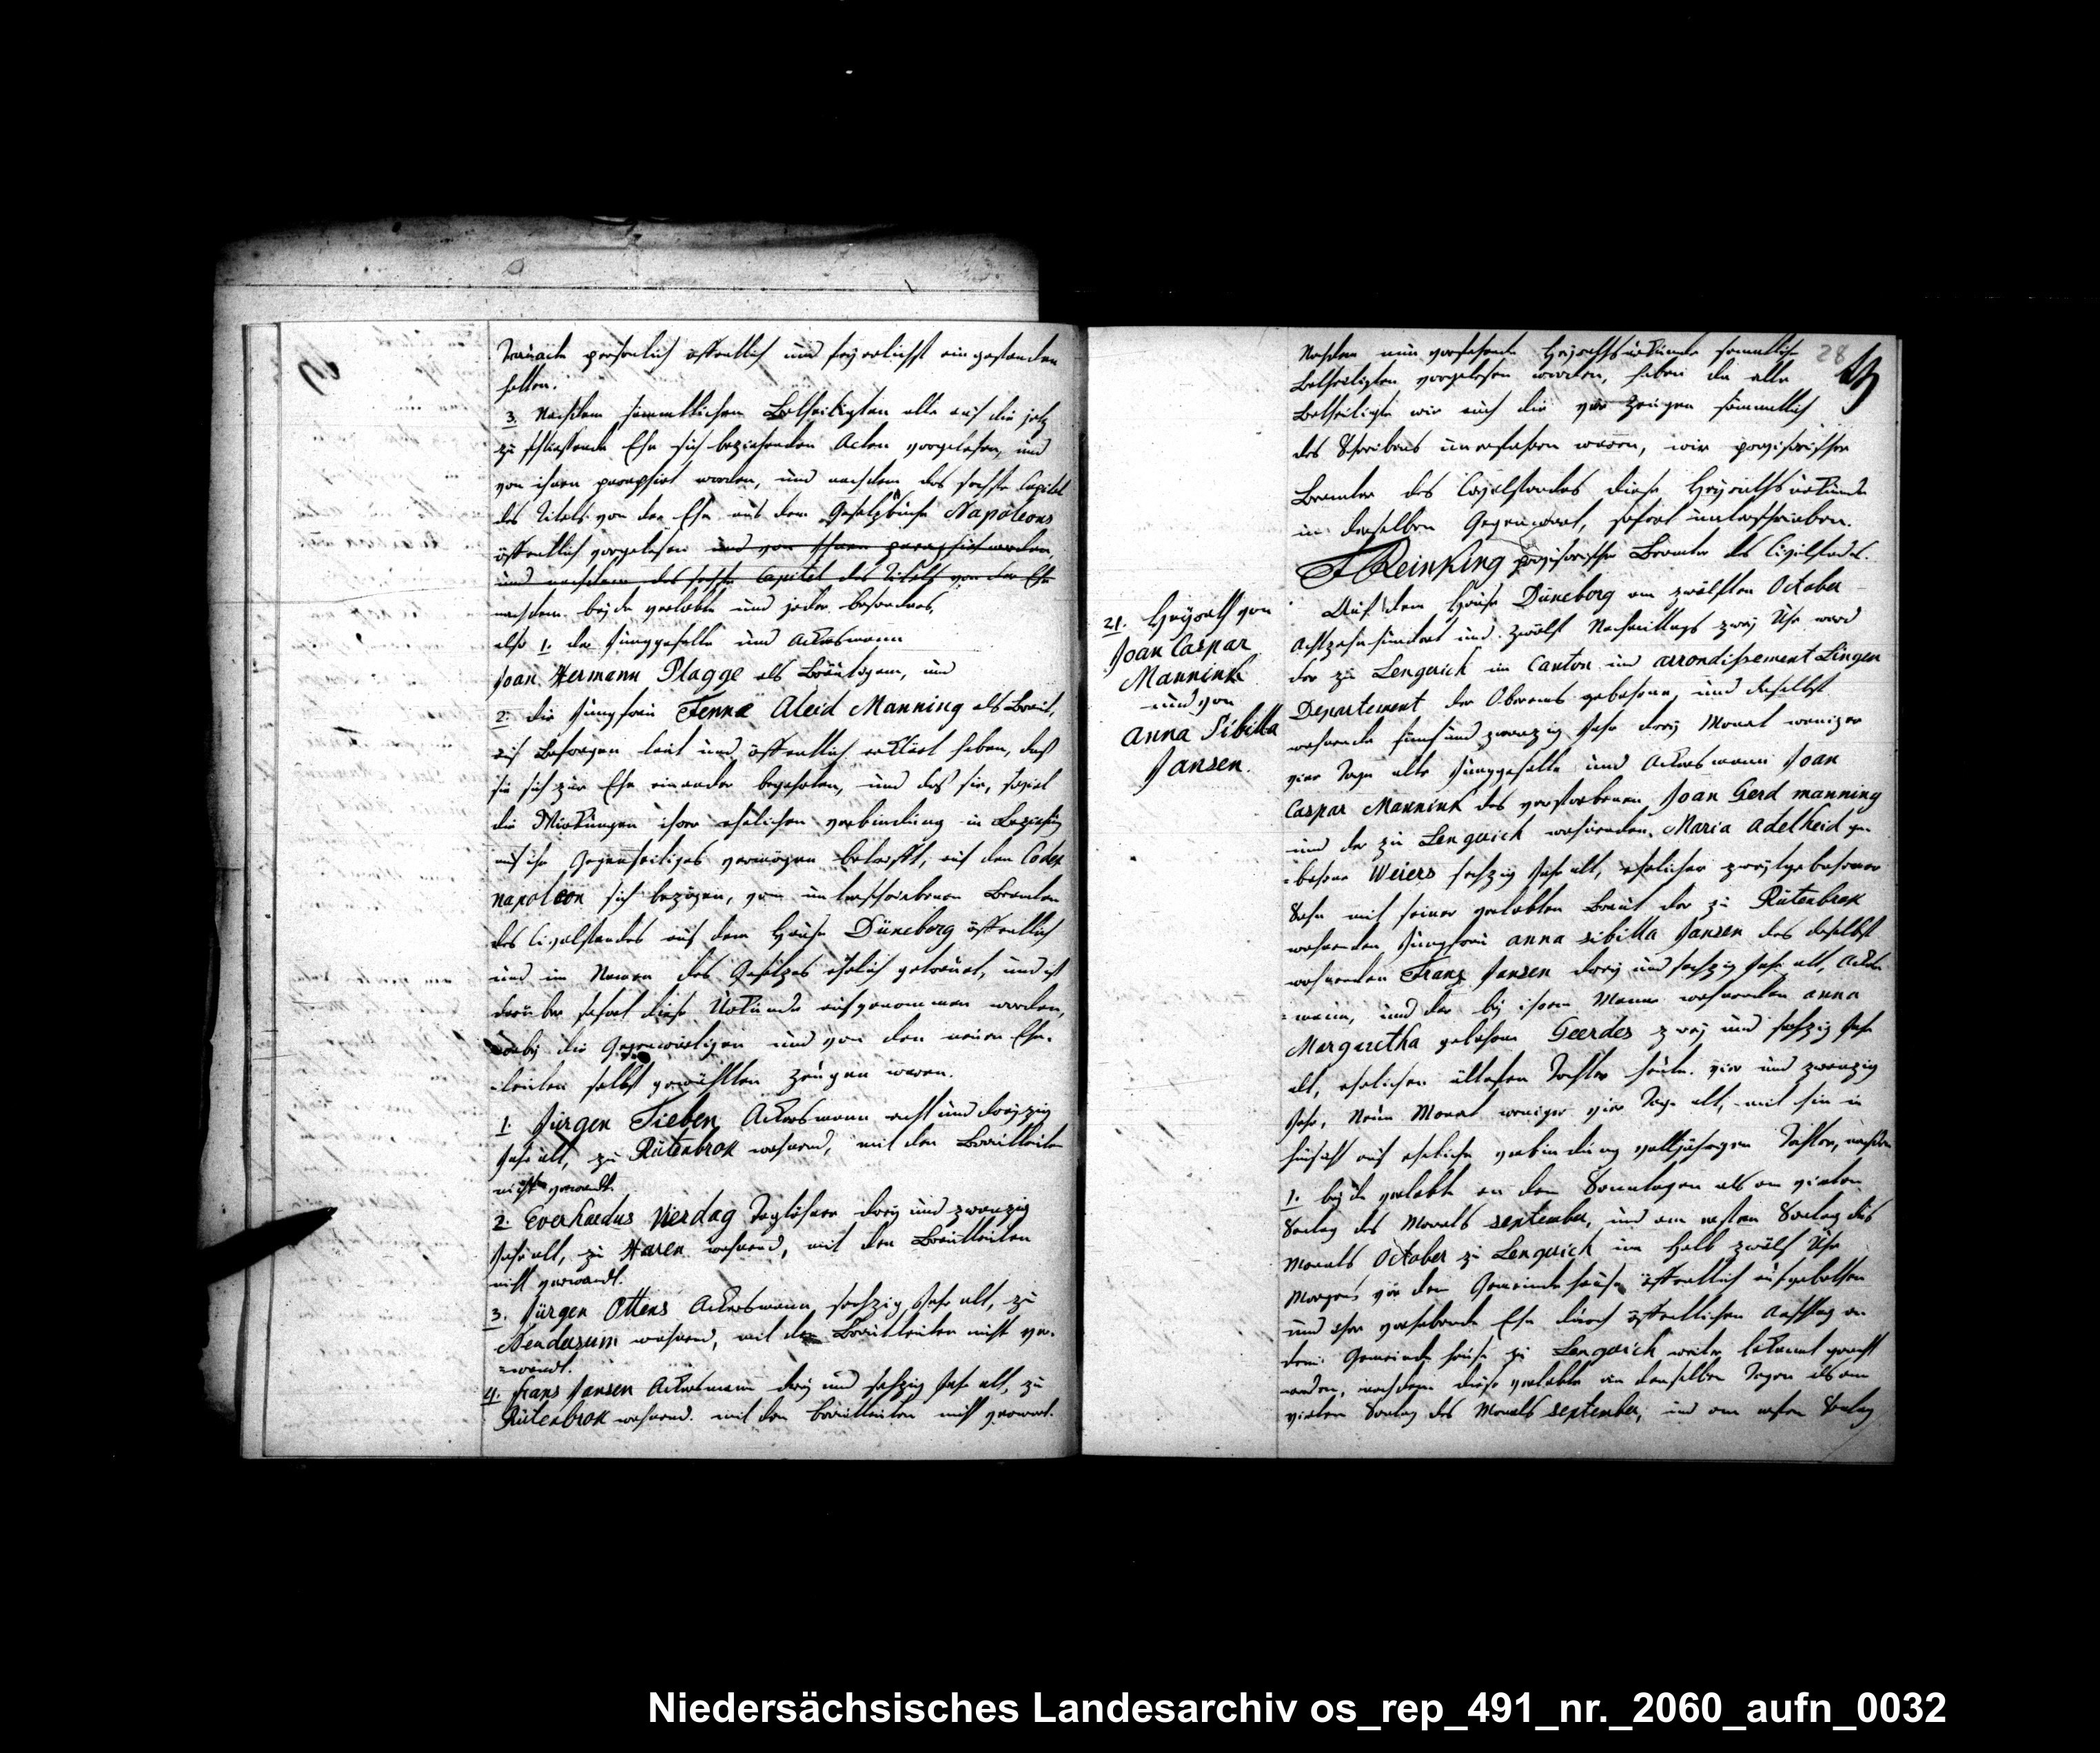 persönlich öffentlich und feyerlichst eingestanden
hatten.
3. Nachdem sämmtlichen Betheiligten alle auf die jetz
zu schliessende Ehe sich beziehenden Acten vorgelesen, und
von ihnen paraphirt worden, und nachdem das sechste Capitel
des Titels von der Ehe aus dem Gesetzbuche Napoleons
öffentlich vorgelesen und von ihnen paraphirt worden,
und nachdem das sechste Capitel des Titels von der Ehe
nachdem beyde verlobte und jeder besonders,
also 1. der Junggeselle und Ackersmann
Joan Hermann Plagge als Bräutigam, und
2. die Jungfrau Fenna Aleid Manning als Braut,
auf Befragen laut und öffentlich erklärt haben, daß
sie sich zur Ehe einander begehrten, und daß sie, soviel
die Wirkungen ihrer ehelichen verbindung in Beziehung
auf ihr Gegenseitiges vermögen betrifft, auf den Codex
napoleon sich bezögen, vom unterschriebenen Beamten
des Civilstandes auf dem Hause Düneborg öffentlich
und im Namen des Gesetzes ehelich getrauet, und ist
darüber sofort diese Urkunde aufgenommen worden,
wobey die Gegenwärtigen und von den neuen Ehe-
-leuten selbst gewählten Zeugen waren.
1. Jürgen Tieben Ackersmann acht und dreyzig
Jahr alt, zu Rütenbrok wohnend, mit den Brautleuten
nicht verwandt.
2. Everhardus Vierdag Taglöhner drey und zwanzig
Jahr alt, zu Haren wohnend, mit den Brautleuten
nicht verwandt.
3. Jürgen Ottens Ackersmann sechzig Jahr alt, zu
wohnend, mit den Brautleuten nicht ver-
=wandt.
4. Frans Jansen Ackersmann drey und sechzig Jahr alt, zu
Rütenbrok wohnend. mit den Brautleuten nicht verwandt.
28
Nachdem nun vorstehende Heyrathsurkunde sämmtliche
Betheiligten vorgelesen worden, haben da alle
Betheiligte wie auch die vier Zeugen sämmtlich
des Schreibens unerfahren waren, wir provisorischer
Beamter des Civilstandes diese Heyrathsurkunde
in derselben Gegenwart, sofort unterschrieben.
Reinking provisorischer Beamter des Civilstandes.
21. Heyrath von
Joan Caspar
Mannink
und von
Anna Sibilla
Jansen.
Auf dem Hause Düneborg am zwölften October
Achtzehnhundert und zwölf Nachmittags zwey Uhr ward
der zu Lengerich im Canton und arrondissement Lingen
Departement der Oberems gebohrne, und daselbst
wohnende fünfund zwanzig Jahr drey Monat weniger
vier Tage alte Junggeselle und Ackersmann Joan
Caspar Mannink des verstorbenen Joan Gerd manning
und der zu Lengerich wohnenden Maria Adelheid ge-
=bohrne Weiers sechzig Jahr alt, ehelicher zweytgebohrner
Sohn mit seiner verlobten Braut der zu Rütenbrok
wohnenden Jungfrau anna sibilla Jansen des daselbst
wohnenden Franz Jansen drey und sechzig Jahr alt, Ackers-
=mann, und der bey ihrem Manne wohnenden anna
Margaretha gebohrne Geerdes zwey und sechzig Jahr
alt, ehelichen ältesten Tochter heute vier und zwanzig
Jahr, Neun Monat weniger vier Tage alt, mit hin in
hinsicht auf eheliche verbindung volljährigen Tochter, nachdem
1. beyde verlobte an den Sonntagen als am vierten
Sontag des Monats september, und am ersten Sontag des
Monats October zu Lengerich um halb zwölf Uhr
Morgens vor dem Gemeindehause öffentlich aufgebothen
und ihre vorhabende Ehe durch öffentlichen Anschlag an
dem Gemeindehause zu Lengerich weiter bekannt gemacht
worden, nachdem diese verlobte an denselben Tagen als am
vierten Sontag des Monats september, und am ersten Sontag
Niedersächsisches Landesarchiv os_rep_491_nr._2060_aufn_0032